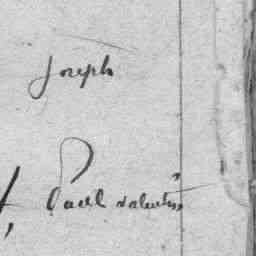 Joseph
Paul valentin